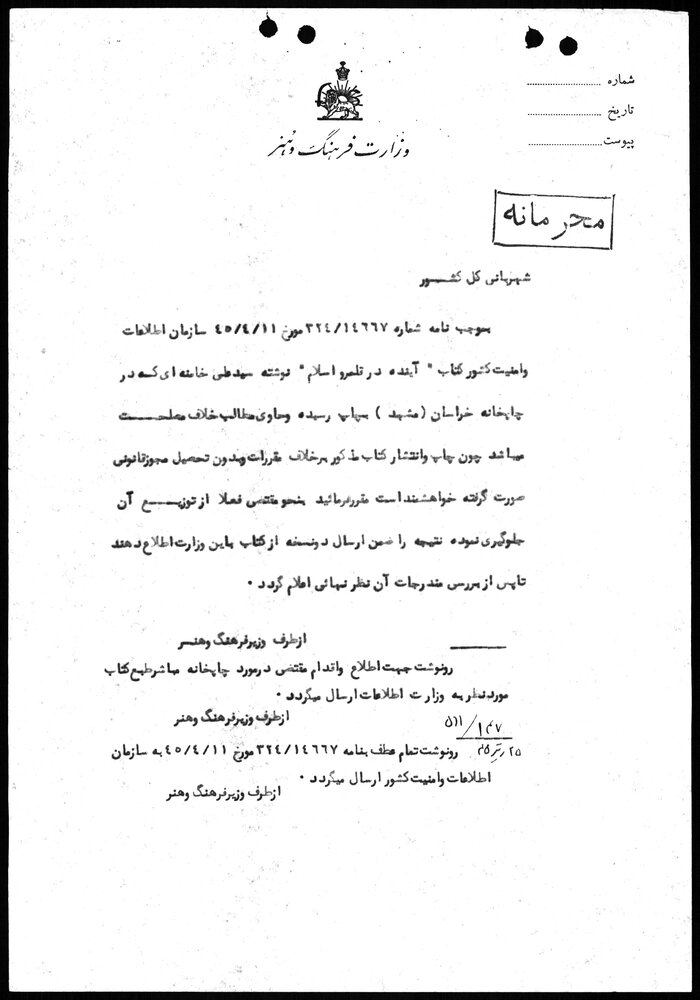 شماره ........................
تاریخ ........................
پیوست ........................
وزارت فرهنگ و هنر
محرمانه
شهربانی کل کشـــور
بموجب نامه شماره ۳۲۴/۱۴۶۶۷ مورخ ۴۵/۴/۱۱ سازمان اطلاعات
وامنیت کشور کتاب " آینده در قلمرو اسلام " نوشته سیدعلی خامنه ای کـه در
چاپخانه خراسان (مشهد ) بچاپ رسیده وحاوی مطالب خلاف مصلحـــت
میباشد چون چاپ وانتشار کتاب مذکور برخلاف مقررات وبدون تحصیل مجوزقانونی
صورت گرفته خواهشمند است مقررفرمائید بنحو مقتضی فعلا از توزیـــع آن
جلوگیری نموده نتیجه را ضمن ارسال دونسخه از کتاب باین وزارت اطلاع دهند
تاپس از بررسی مندرجات آن نظر نهائی اعلام گردد .
ازطرف وزیرفرهنگ وهنـر
رونوشت جهت اطلاع واقدام مقتضی درمورد چاپخانه مباشرطبع کتاب
موردنظر به وزارت اطلاعات ارسال میگردد .
ازطرف وزیرفرهنگ وهنر
۵۱۱/۱۴۷
۲۵ تیر ۴۵
رونوشت تمام عطف بنامه ۳۲۴/۱۴۶۶۷ مورخ ۴۵/۴/۱۱ به سازمان
اطلاعات وامنیت کشور ارسال میگردد .
ازطرف وزیرفرهنگ وهنر